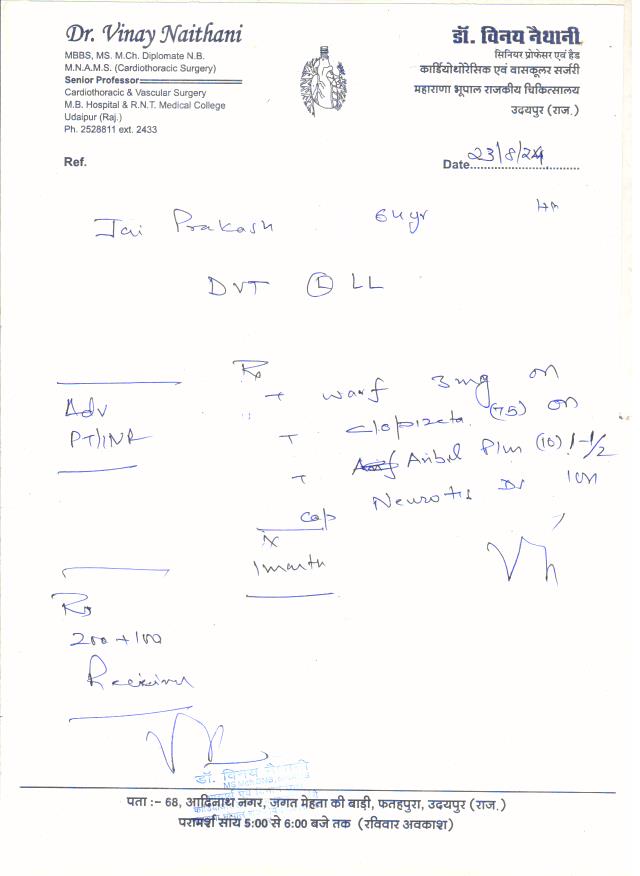 Dr. Vinay Naithani
MBBS, MS. M.Ch. Diplomate N.B.
M.N.A.M.S. (Cardiothoracic Surgery)
Senior Professor
Cardiothoracic & Vascular Surgery
M.B. Hospital & R.N.T. Medical College
Udaipur (Raj.)
Ph. 2528811 ext. 2433
डॉ. विनय नैथानी
सिनियर प्रोफेसर एवं हैड
कार्डियोथोरेसिक एवं वासकूलर सर्जरी
महाराणा भूपाल राजकीय चिकित्सालय
उदयपुर (राज.)
Ref.
Date 23/8/24
Jai Prakash 64yr
DVT Ⓛ LL
Adv
PT/INR
Rx
T warf 3mg on
T (75) on
T Plus (10) 1-1/2
Cap
x
1 month
Rs
200+100
डॉ. विनय नैथानी
पता :- 68, आदिनाथ नगर, जगत मेहता की बाड़ी, फतहपुरा, उदयपुर (राज.)
परामर्श सांय 5:00 से 6:00 बजे तक (रविवार अवकाश)